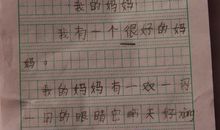 我的妈妈
我有一个很好的妈
妈。
我的妈妈有一双一哥
一月的眼睛它